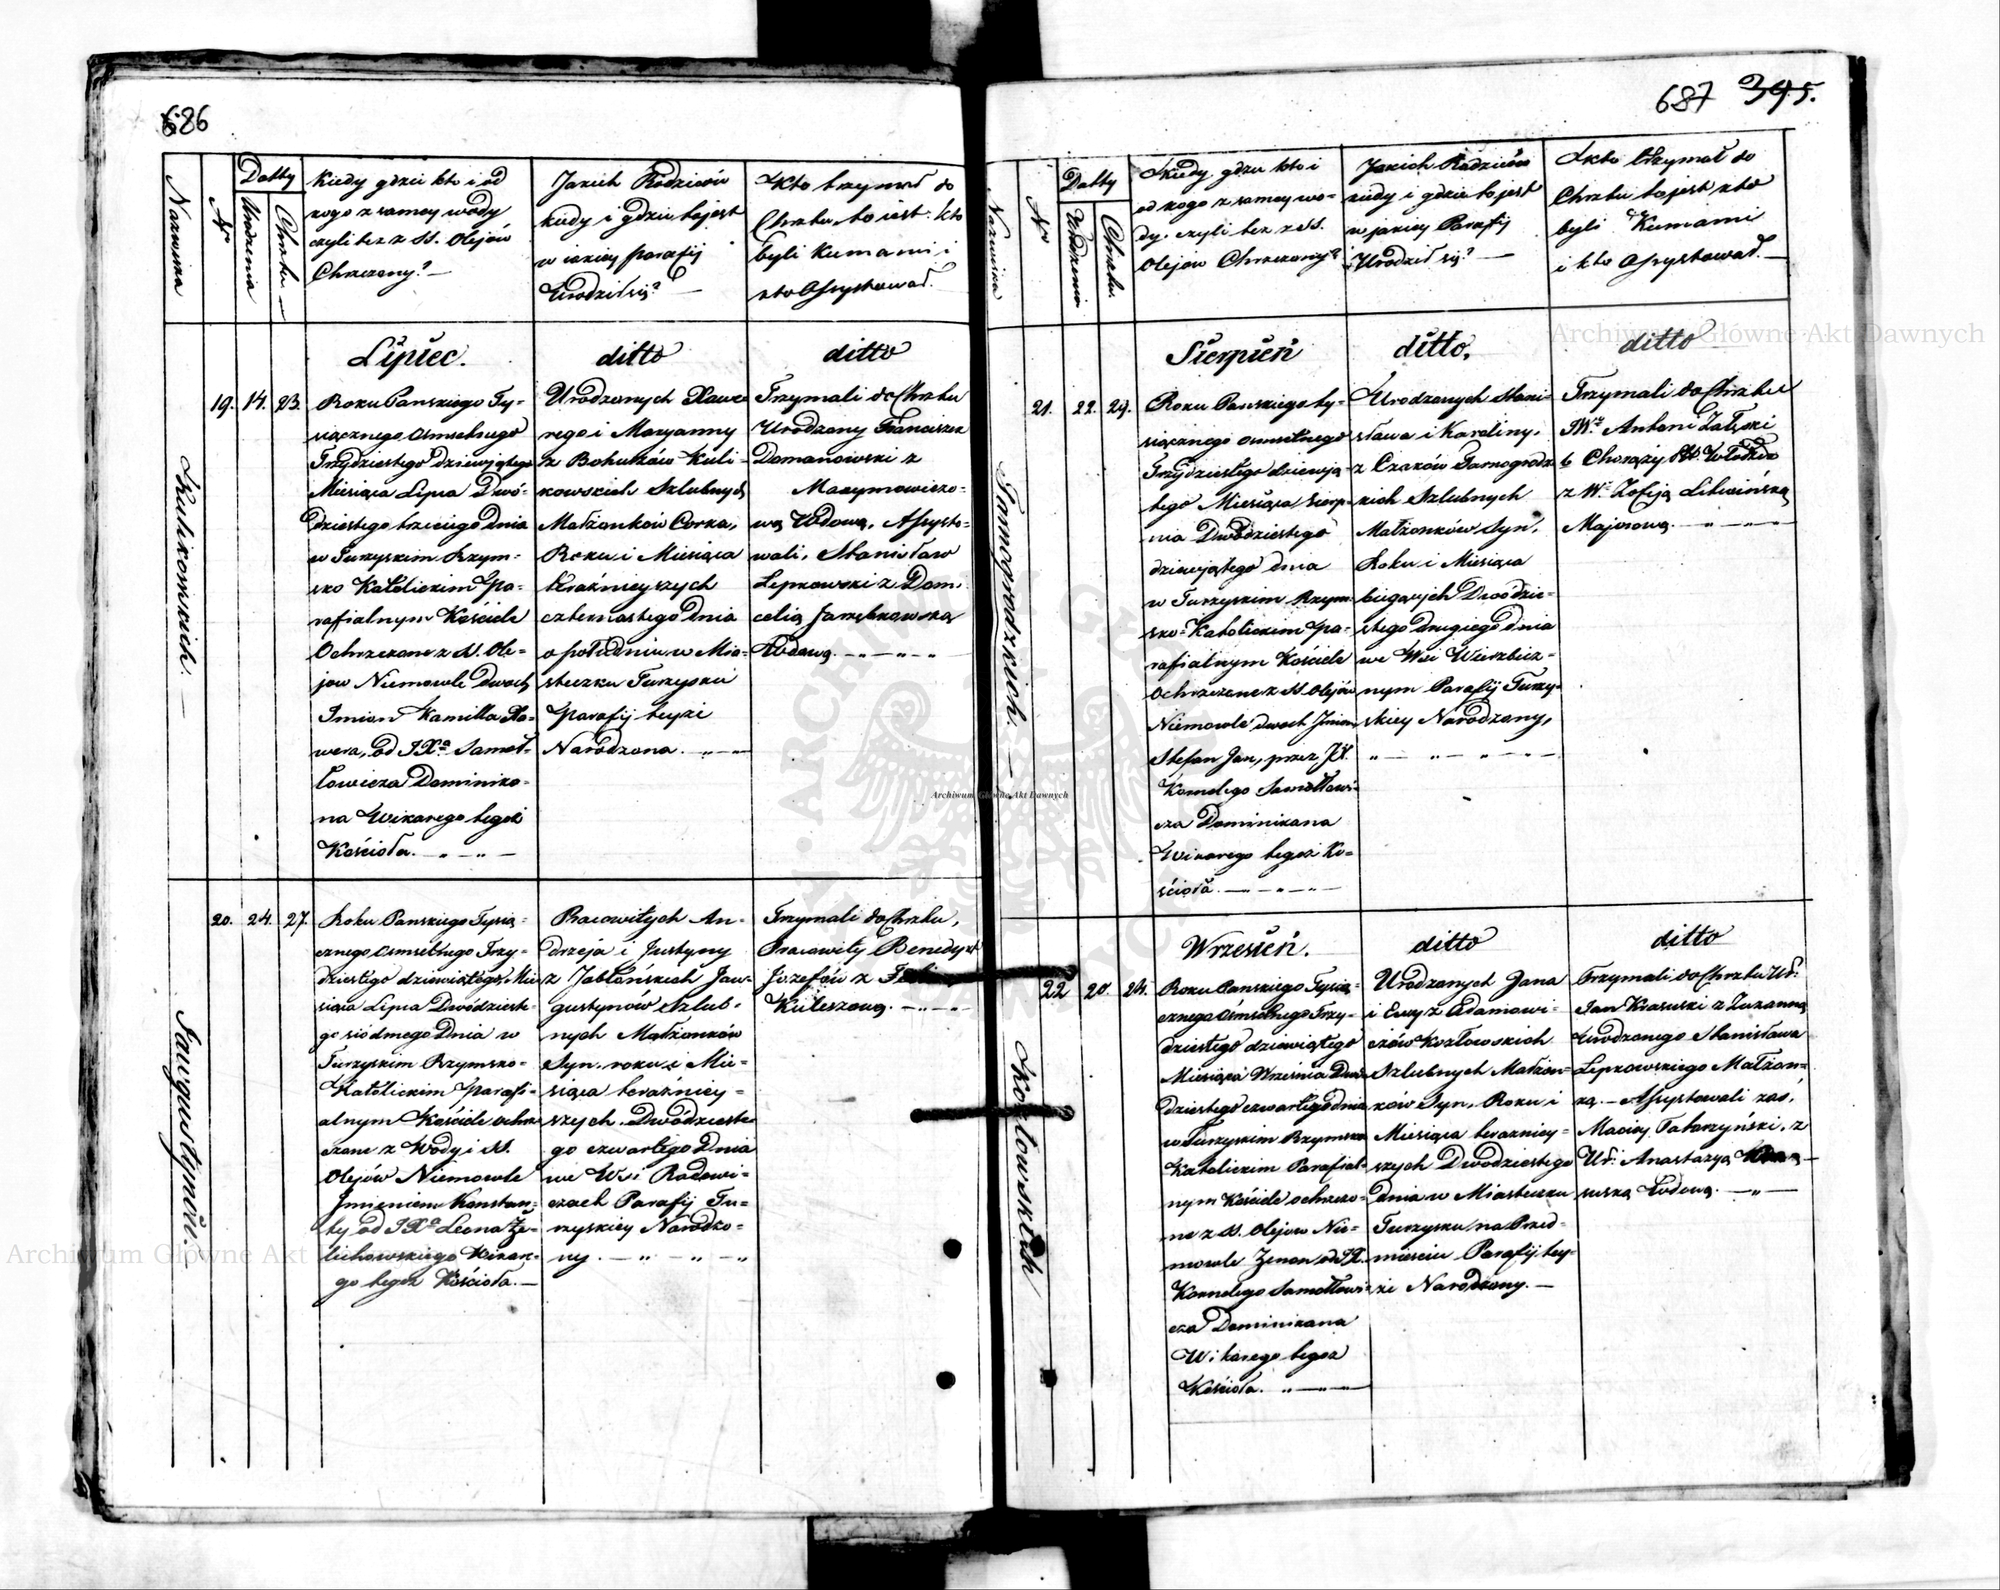 686
Nazwiska
No
Datty
Urodzenia
Chrztu
Kiedy gdzie kto i od
kogo z samey wody
czyli tez z SS. Olejów
Chrzczony? —
Jakich Rodziców
kiedy i gdzie to jest
w jakiej parafij
Urodził się? —
Kto trzymał do
Chrztu to iest: kto
byli Kumami i
kto Assystował.
Lipiec.
ditto
ditto
Kulikowskich. —
19. 14. 23.
Roku Panskiego Ty-
siącznego Osmsetnego
Trzydziestego dziewiątego
Miesiąca Lipca Dwó-
dziestego trzeciego dnia
w Turzyskim Rzym-
sko Katolickim Pa-
rafialnym Kościele
Ochrzczone z SS. Ole-
jow Niemowle dwoch
Imion Kamilla Xa-
wera, od JXa Samoł-
łowicza Dominika-
na Wikarego tegoż
Kościoła. — „ —
Urodzonych Xawe-
rego i Maryanny
z Bohuszów Kuli-
kowskich Szlubnych
Małżonków Corka,
Roku i Miesiąca
teraźnieyszych
czternastego Dnia
o południu w Mia-
steczku Turzysku
Parafij teyże
Narodzona. „ —
Trzymali do Chrztu
Urodzony Franciszek
Domanowski z
Maxymowiczo-
wą Wdową, Assysto-
wali, Stanisław
Lepkowski z Dom.
celią Jarzębkowską
Wdową. — „ — „ —
Jawgustynów. —
20. 24. 27.
Roku Panskiego Tysią-
cznego Osmsetnego Trzy-
dziestego dziewiątego Mie
siąca Lipca Dwódzieste-
go siódmego Dnia w
Turzyskim Rzymsko-
Katolickim Parafi-
alnym Kościele ochrz-
czone z Wody i SS.
Olejów Niemowle
Imieniem Konstan-
ty od JXa Leona Że-
lichowskiego Wikar-
go tegoż Kościoła. —
Pracowitych An-
drzeja i Justyny
z Jabłońskich Jaw-
gustynów Szlub-
nych Małżonków
Syn. roku i Mie-
siąca teraźniey-
szych. Dwódzieste-
go czwartego Dnia
we Wsi Radowi-
czach Parafij Tu-
rzyskiey Narodzo-
ny. — „ — „ — „
Trzymali do Chrztu,
Pracowity Benedykt
Jozefów z
Kuleszową. — „ —
687 345.
Nazwiska
No
Datty
Urodzenia
Chrztu.
Kiedy gdzie kto i
od kogo z samey wo-
dy, czyli tez z SS.
Olejow Chrzczony?
Jakich Rodziców
kiedy i gdzie to jest
w jakiey Parafij
Urodził się? —
Kto trzymał do
Chrztu to jest kto
byli Kumami
i kto Assystował. —
Sierpień
ditto,
ditto
Tarnogrodzkich. —
21. 22. 29.
Roku Panskiego ty-
siącznego osmsetnego
Trzydziestego dziewią-
tego Miesiąca Sierp-
nia Dwódziestego
dziewiątego dnia
w Turzyskim Rzym-
sko-Katolickim Pa-
rafialnym Kościele
Ochrzczone z SS Olejów
Niemowle dwoch Imion
Stefan Jan, przez JX.
Kornelego Samołłowi-
cza Dominikana
Wikarego tegoż Ko-
ścioła. — „ — „ —
Urodzonych Stani-
sława i Karoliny,
z Czaków Tarnogrodz-
kich Szlubnych
Małżonków Syn,
Roku i Miesiąca
bieżących Dwódzie-
stego drugiego dnia
we Wsi Wierzbicz-
nym Parafij Turzy-
skiey Narodzony,
„ — „ — „ — „ —
Trzymali do Chrztu
JWny Antoni Załęski
b Chorąży Włodzi
z Wną Zofiją Litwińską
Majorową. — „ — „ —
Wrzesień.
ditto
ditto
Kozłowskich
22 20. 24.
Roku Panskiego Tysią-
cznego Ośmsetnego Trzy-
dziestego dziewiątego
Miesiąca Września Dwó-
dziestego czwartego dnia
w Turzyskim Rzymsko
Katolickim Parafial-
nym Kościele ochrzczo-
ne z SS. Olejow Nie-
mowle Zenon od JX.
Kornelego Samołłowi-
cza Dominikana
Wikarego tegoż
Kościoła. „ — „ —
Urodzonych Jana
i Ewy z Adamowi-
czów Kozłowskich
Szlubnych Małżon-
ków Syn, Roku i
Miesiąca teraźniey-
szych Dwódziestego
Dnia w Miasteczku
Turzysku na Przed-
mieściu Parafij tey-
że Narodzony. —
Trzymali do Chrztu Ur:
Jan Krasuski z Zuzanną
Urodzonego Stanisława
Lepkowskiego Małżon-
ką. — Assystowali zaś,
Maciey Tatarzyński, z
Ur: Anastazyą
suską Wdową. — „ —
Archiwum Główne Akt Dawnych
Archiwum Główne Akt Dawnych
Archiwum Główne Akt